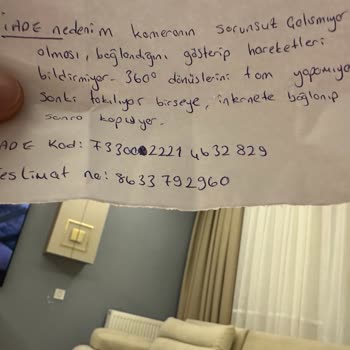 İADE nedenim kameranın sorunsuz Çalışmıyor
olması, bağlandığını gösterip hareketleri
bildirmiyor. 360° dönüşlerini tam yapamıyor
Sanki takılıyor birşeye, internete bağlanıp
sonra kopuyor.
ADE Kod: 733002221 4632 829
eslimat no: 8633792960